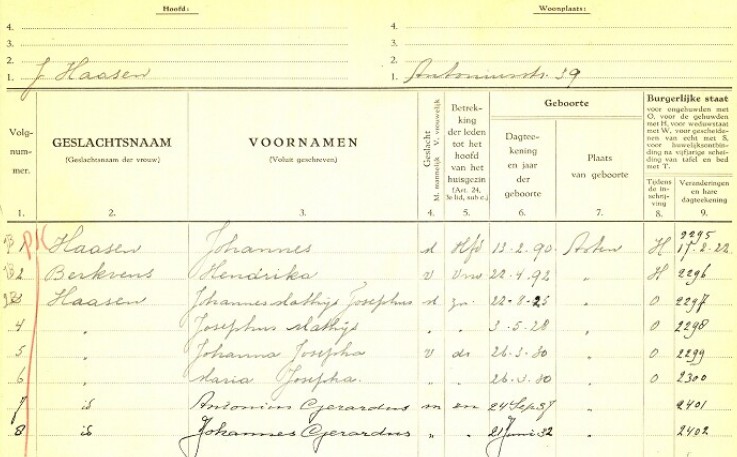 Hoofd: Woonplaats:
4. 4.
3. 3.
2. 2.
1. J. Haasen 1. Antoniusstr. 39
Volg-
num-
mer.
GESLACHTSNAAM
(Geslachtsnaam der vrouw)
VOORNAMEN
(Voluit geschreven)
Geslacht
M. mannelijk V. vrouwelijk
Betrek-
king
der leden
tot het
hoofd
van het
huisgezin
(Art. 24,
3e lid, sub c.)
Geboorte
Dagtee-
kening
en jaar
der
geboorte
Plaats
van geboorte
Burgerlijke staat
voor ongehuwden met
O, voor de gehuwden
met H, voor weduwstaat
met W, voor gescheide-
nen van echt met S,
voor huwelijksontbin-
ding na vijfjarige schei-
ding van tafel en bed
met T.
Tijdens
de in-
schrij-
ving
Veranderingen
en hare
dagteekening
1. 2. 3. 4. 5. 6. 7. 8. 9.
2295
1 PK Haasen Johannes M Hfd 13.2.90 Asten H 17.2.22
2 Berkvens Hendrika V Vrw 22.4.92 " H 2296
3 Haasen Johannes Mathijs Josephus M zn. 22-8-25 " O 2297
4 " Josephus Mathijs " " 3-5-28 " O 2298
5 " Johanna Josepha V do 26.3.30 " O 2299
6 " Maria Josepha. " " 26.3.30 " O 2300
7 id Antonius Gerardus m zn 24 Sep 37 " 2401
8 id Johannes Gerardus " " 21 Juni 32 " 2402